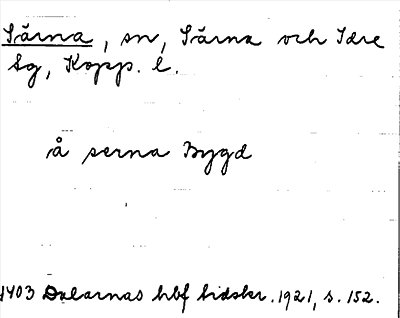 Särna, sn, Särna och Idre
tg, Kopp. l.
å serna Bygd
1403 Dalarnas hbf tidskr. 1921, s. 152.